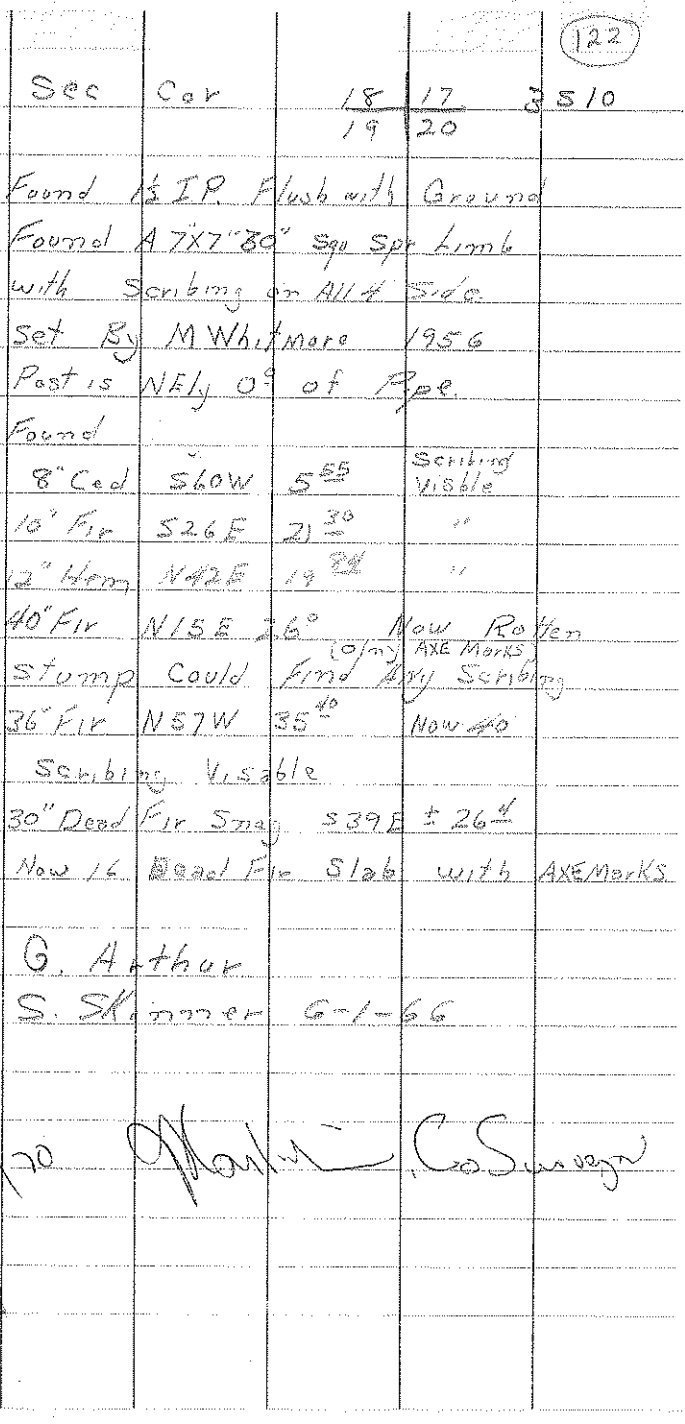 122
Sec Cor 18 17 3S10
19 20
Found 1½ I.P. Flush with Ground
Found A 7"X7"30" Squ Spr Limb
with Scribing on All 4 Side
Set By M Whitmore 1956
Post is NEly of Pipe.
Found
8" Ced S60W 5 55 Scribing Visble
10" Fir S26E 21 30 "
12" Hem N42E 19 "
40" Fir N15E 26° Now Rotten
(only AXE Marks)
Stump Could Find Any Scribing
36" Fir N57W 35 40 Now 40
Scribing Visable
30" Dead Fir Snag S39E ± 26 4
Now 16 Dead Fir Slab with AXE Marks
G. Arthur
S. Skinner 6-1-66
Co. Surveyor